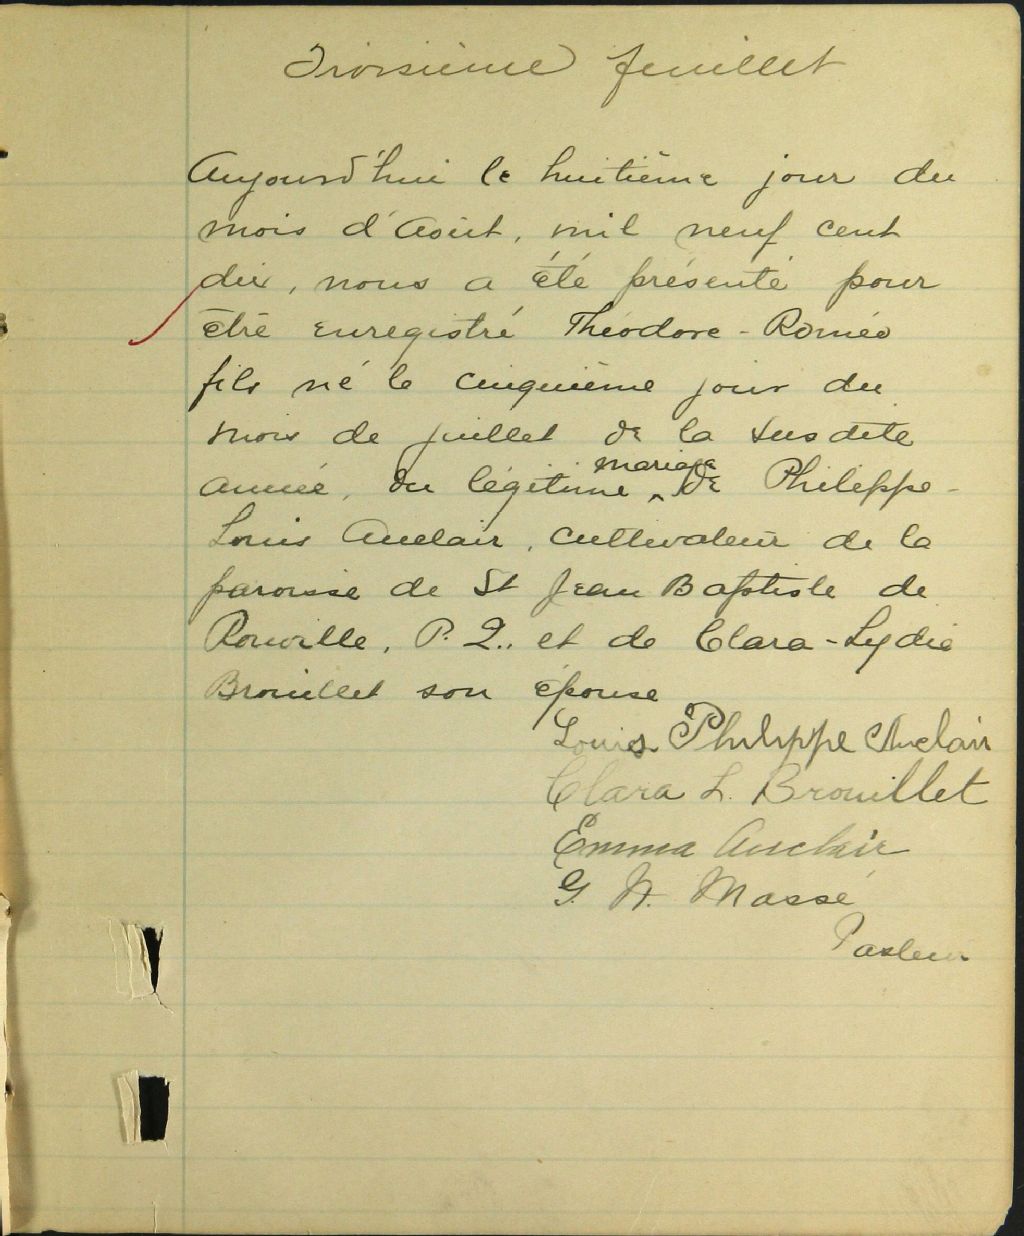 Troisième feuillet
Aujourd'hui le huitième jour du
mois d'Août, mil neuf cent
dix, nous a été présenté pour
être enregistré Théodore-Roméo
fils né le cinquième jour du
mois de juillet de la susdite
année, du légitime mariage de Philippe-
Louis Auclair, cultivateur de la
paroisse de St Jean Baptiste de
Rouville, P. Q., et de Clara-Lydie
Brouillet son épouse
Louis Philippe Auclair
Clara L. Brouillet
Emma Auclair
G. N. Massé
Pasteur